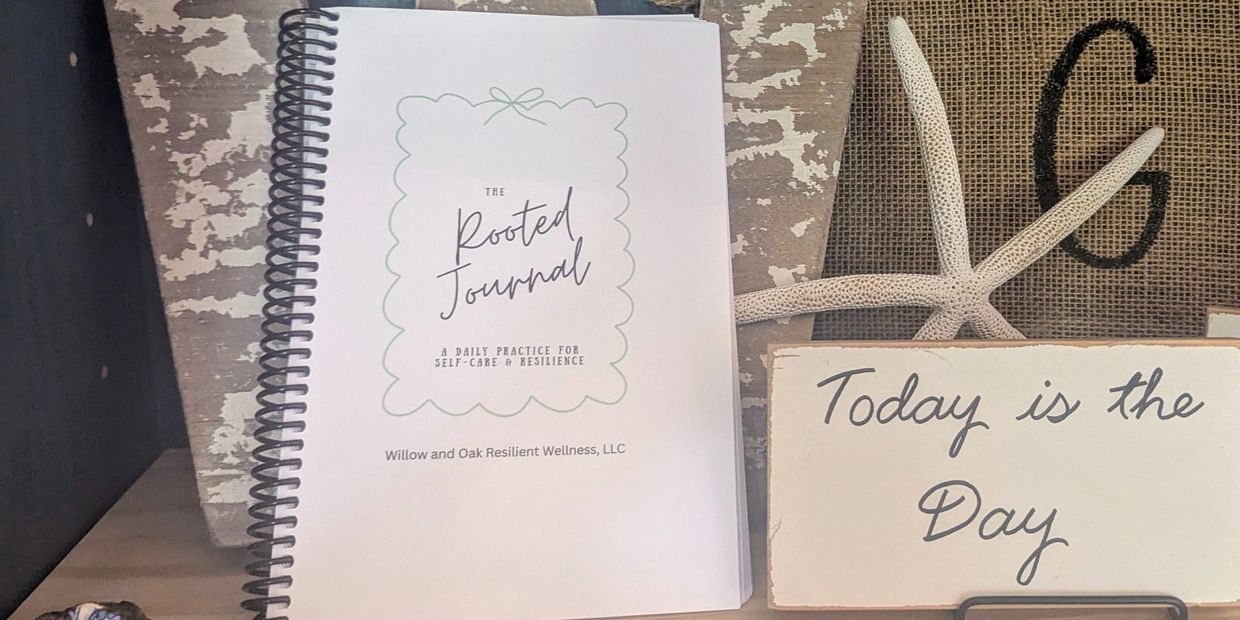 THE
Rooted
Journal
A DAILY PRACTICE FOR
SELF-CARE & RESILIENCE
Willow and Oak Resilient Wellness, LLC
G
Today is the
Day